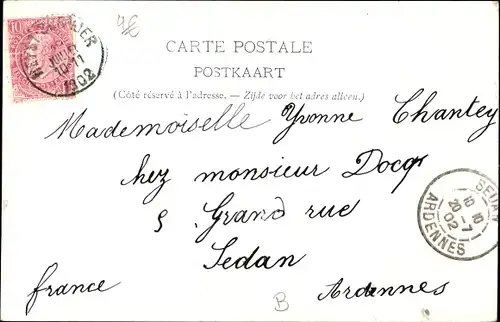 4€
10
1902
CARTE POSTALE
POSTKAART
(Côté réservé à l'adresse. — Zijde voor het adres alleen.)
Mademoiselle Yvonne Chantey
chez monsieur Docq
5 Grand rue
Sedan
france Ardennes
B
SEDAN
10 10
20 -7
02
ARDENNES